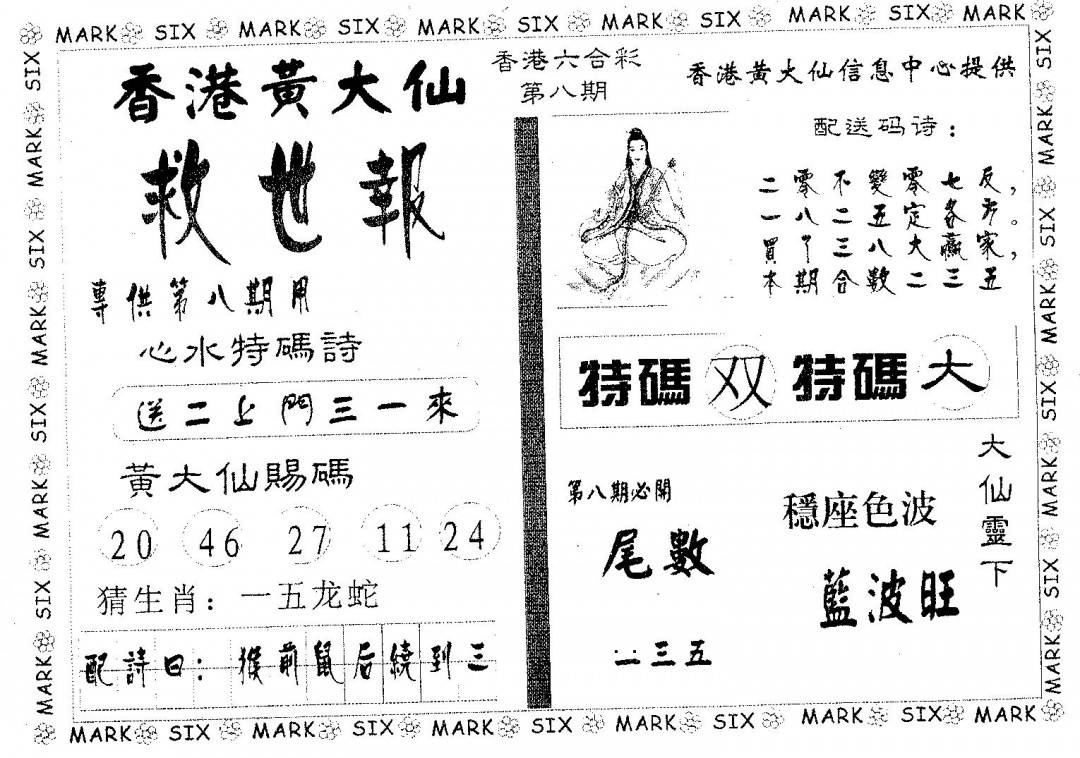 MARK SIX MARK SIX MARK SIX MARK SIX MARK SIX MARK
香港黃大仙
救世報
專供第八期用
心水特碼詩
送二上門三一來
黃大仙賜碼
20 46 27 11 24
猜生肖：一五龙蛇
配詩曰：猴前鼠后繞到三
香港六合彩
第八期
香港黃大仙信息中心提供
配送码诗：
二零不變零七反，
一八二五定各方。
買丫三八大贏家，
本期合數二三五
特碼 双 特碼 大
第八期必開
尾數
一三五
穩座色波
藍波旺
大仙靈下
MARK SIX MARK SIX MARK SIX MARK
MARK SIX MARK SIX MARK SIX MARK
MARK SIX MARK SIX MARK SIX MARK SIX MARK SIX MARK